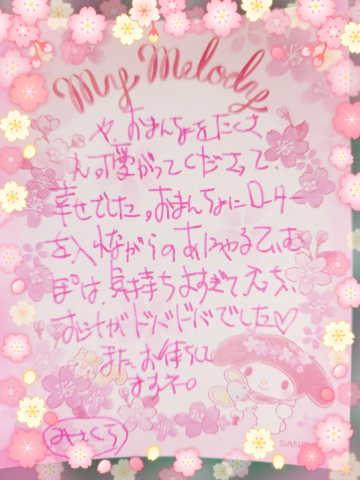 My Melody
や、おまんちょをたくさ
ん可愛がってくださって、
幸せでした。おまんちょにローター
を入れながらのあにゃる
は、気持ちよすぎて、えっちい
おし がドバドバでした♡
また、お待ちして
ますネ。
みさくら
SANRIO